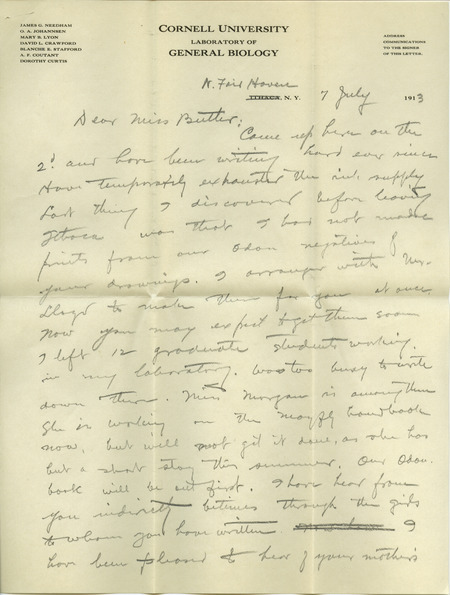 JAMES G. NEEDHAM
O. A. JOHANNSEN
MARY B. LYON
DAVID L. CRAWFORD
BLANCHE E. STAFFORD
A. F. COUTANT
DOROTHY CURTIS
CORNELL UNIVERSITY
LABORATORY OF
GENERAL BIOLOGY
ADDRESS
COMMUNICATIONS
TO THE SIGNER
OF THIS LETTER.
N. Fair Haven
ITHACA, N. Y. 7 July 1913
Dear Miss Butler:
Came up here on the
2d and have been writing hard ever since
Have temporarily exhausted the ink supply
Last thing I discovered before leaving
Ithaca was that I had not made
prints from our Odon negatives of
your drawings. I arranged with Mr.
Lloyd to make them for you at once
Now you may expect to get them soon
I left 12 graduate students working
in my laboratory. Was too busy to write
down there. Miss Morgan is among them
She is working on the mayfly handbook
now, but will not get it done, as she has
but a short stay this summer. Our Odon.
book will be out first. I have hear from
you indirectly betimes through the girls
to whom you have written I
have been pleased to hear of your mother's